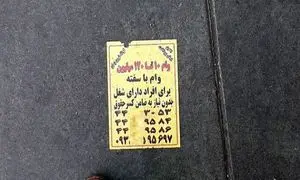 وام ۱۰ تا ۱۲۰ میلیون
وام با سفته
برای افراد دارای شغل
بدون نیاز به ضامن کسر حقوق
۴۴ ۳۰۵۳
۴۴ ۹۵۸۴
۴۴ ۹۵۸۶
۰۹۳ ۱۹۵۶۹۷